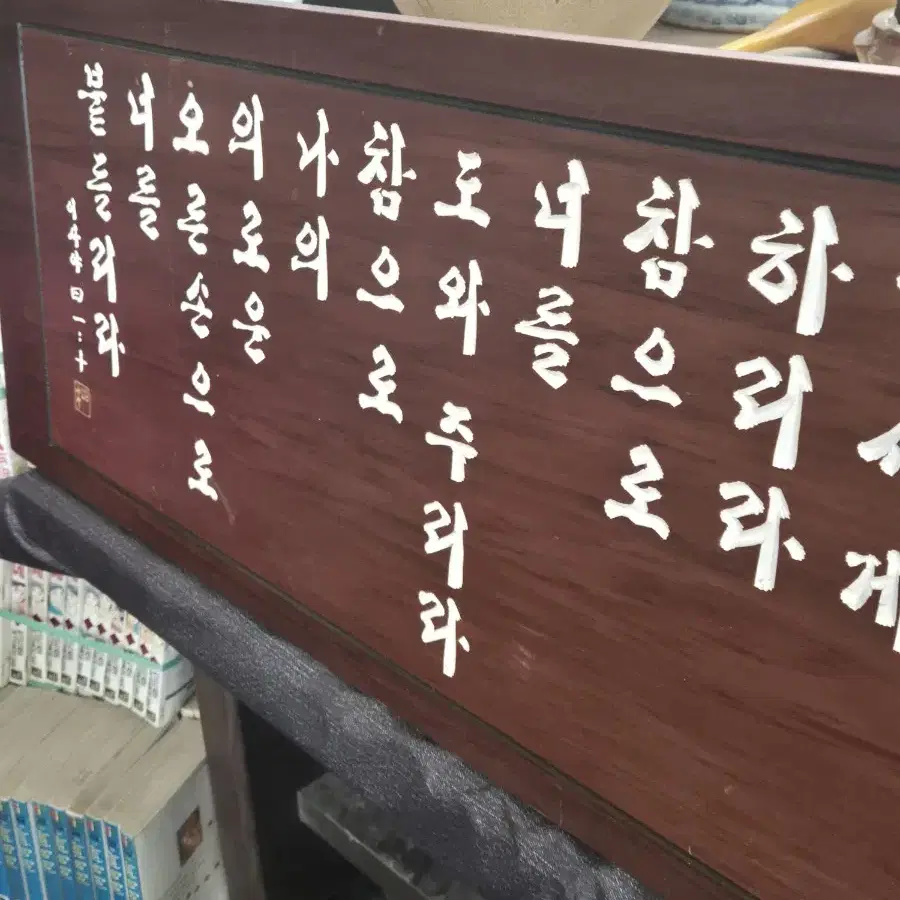 게
하리라
참으로
너를
도와 주리라
참으로
나의
의로운
오른손으로
너를
붙들리라
이사야 四一:十